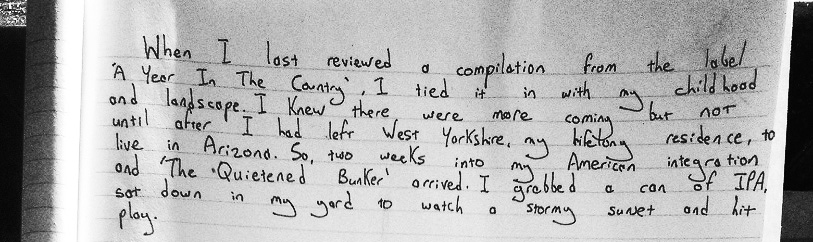 When I last reviewed a compilation from the label
'A Year In The Country', I tied it in with my childhood
and landscape. I knew there were more coming but not
until after I had left West Yorkshire, my lifelong residence, to
live in Arizona. So, two weeks into my American integration
and 'The Quietened Bunker' arrived. I grabbed a can of IPA,
sat down in my yard to watch a stormy sunset and hit
play.